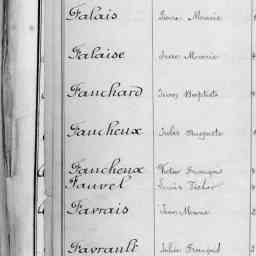 Falais Pierre Marie
Falaise Jean Marie
Fauchard Jean Baptiste
Faucheux Jules Auguste
Faucheux Victor François
Fauvel Louis Victor
Favrais Jean Marie
Favrault Julien François